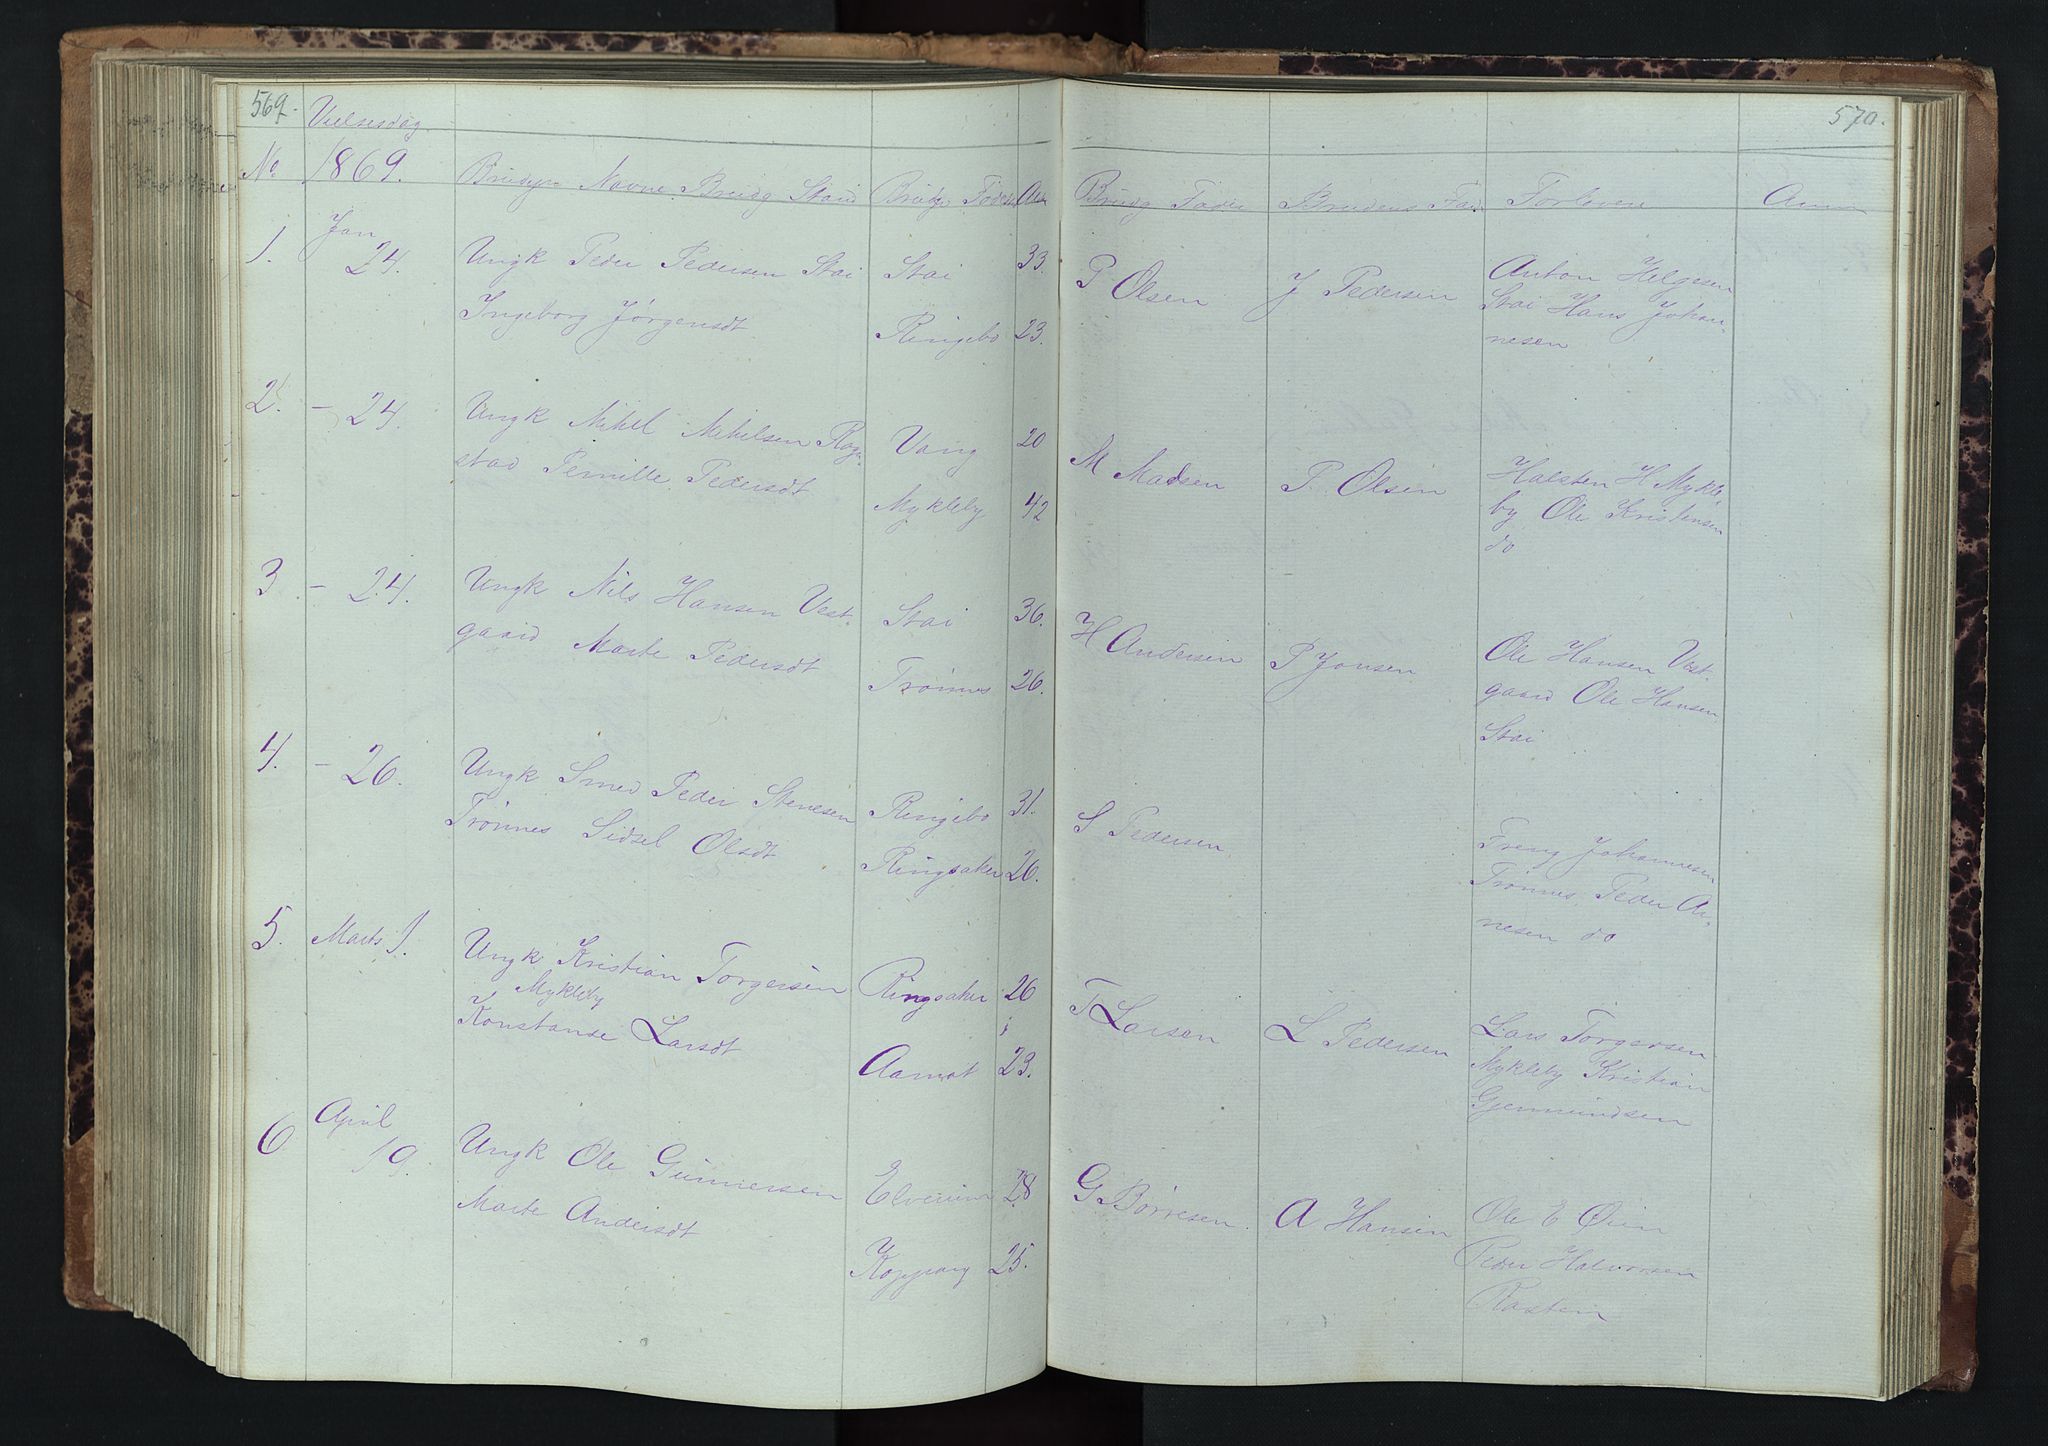 569.
570.
Vielsesdag
No 1869. Brudgs Navne Brudg Stand Brudgs Fødest Brudg Fader Brudens Fad. Forlovere Anm
Jan
1. 24. Ungk Peder Pedersen Stai Stai 33. P Olsen J Pedersen Anton Helgesen
Ingeborg Jørgensdt Ringebo 23. Stai Hans Johan-
nesen
2. - 24. Ungk Mikel Mikelsen Rog- Vang 20 M Madsen P. Olsen Halsten H Mykle-
stad Pernille Pedersdt Mykleby 42 by Ole Kristensen
do
3 - 24. Ungk Nils Hansen Vest- Stai 36. H Andersen P Jonsen Ole Hansen Vest-
gaard Marte Pedersdt Trønnes 26. gaard Ole Hansen
Stai
4. - 26. Ungk Smed Peder Stenesen Ringebo 31. S Pedersen Johannesen
Trønnes Sidsel Olsdt Ringsaker 26. Trønnes Peder Ar-
nesen do
5. Marts 1. Ungk Kristian Torgersen Ringsaker 26 T Larsen L Pedersen Lars Torgersen
Mykleby
Konstanse Larsdt Aamot 23. Mykleby Kristian
Gjermundsen
April
6 19. Ungk Ole Gunnersen Elverum 28 G Børresen A Hansen Ole E Øien
Marte Andersdt Koppang 25. Peder Halvorsen
Rasten